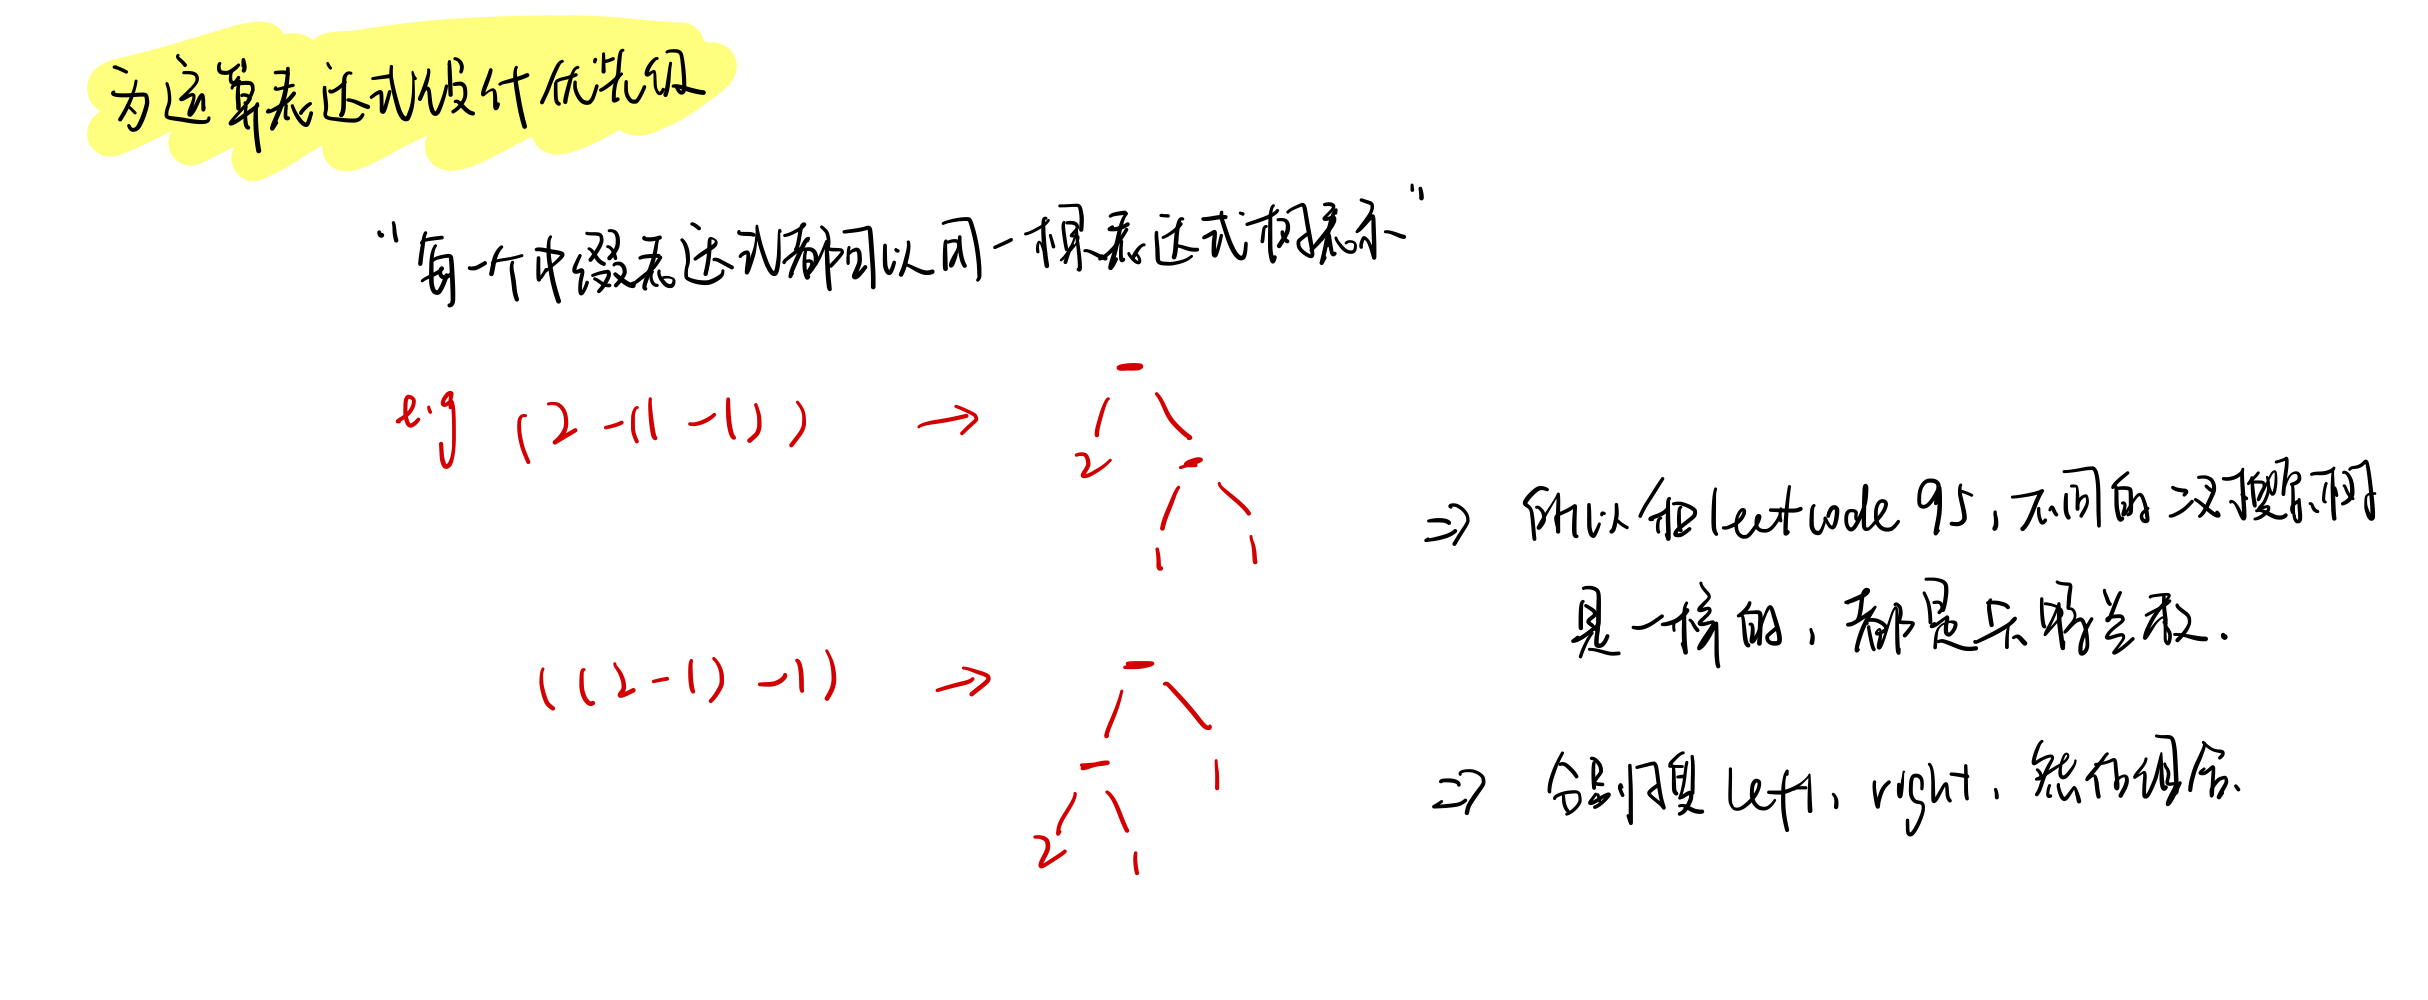 为运算表达式设计优先级
“每一个中缀表达式都可以用一棵表达式树表示”
e.g (2-(1-1)) →
-
2 -
1 1
⇒ 所以和leetcode 95,不同的二叉搜索树
是一样的,都是卡特兰数.
((2-1)-1) →
-
- 1
2 1
⇒ 分别计算 left, right, 然后组合.